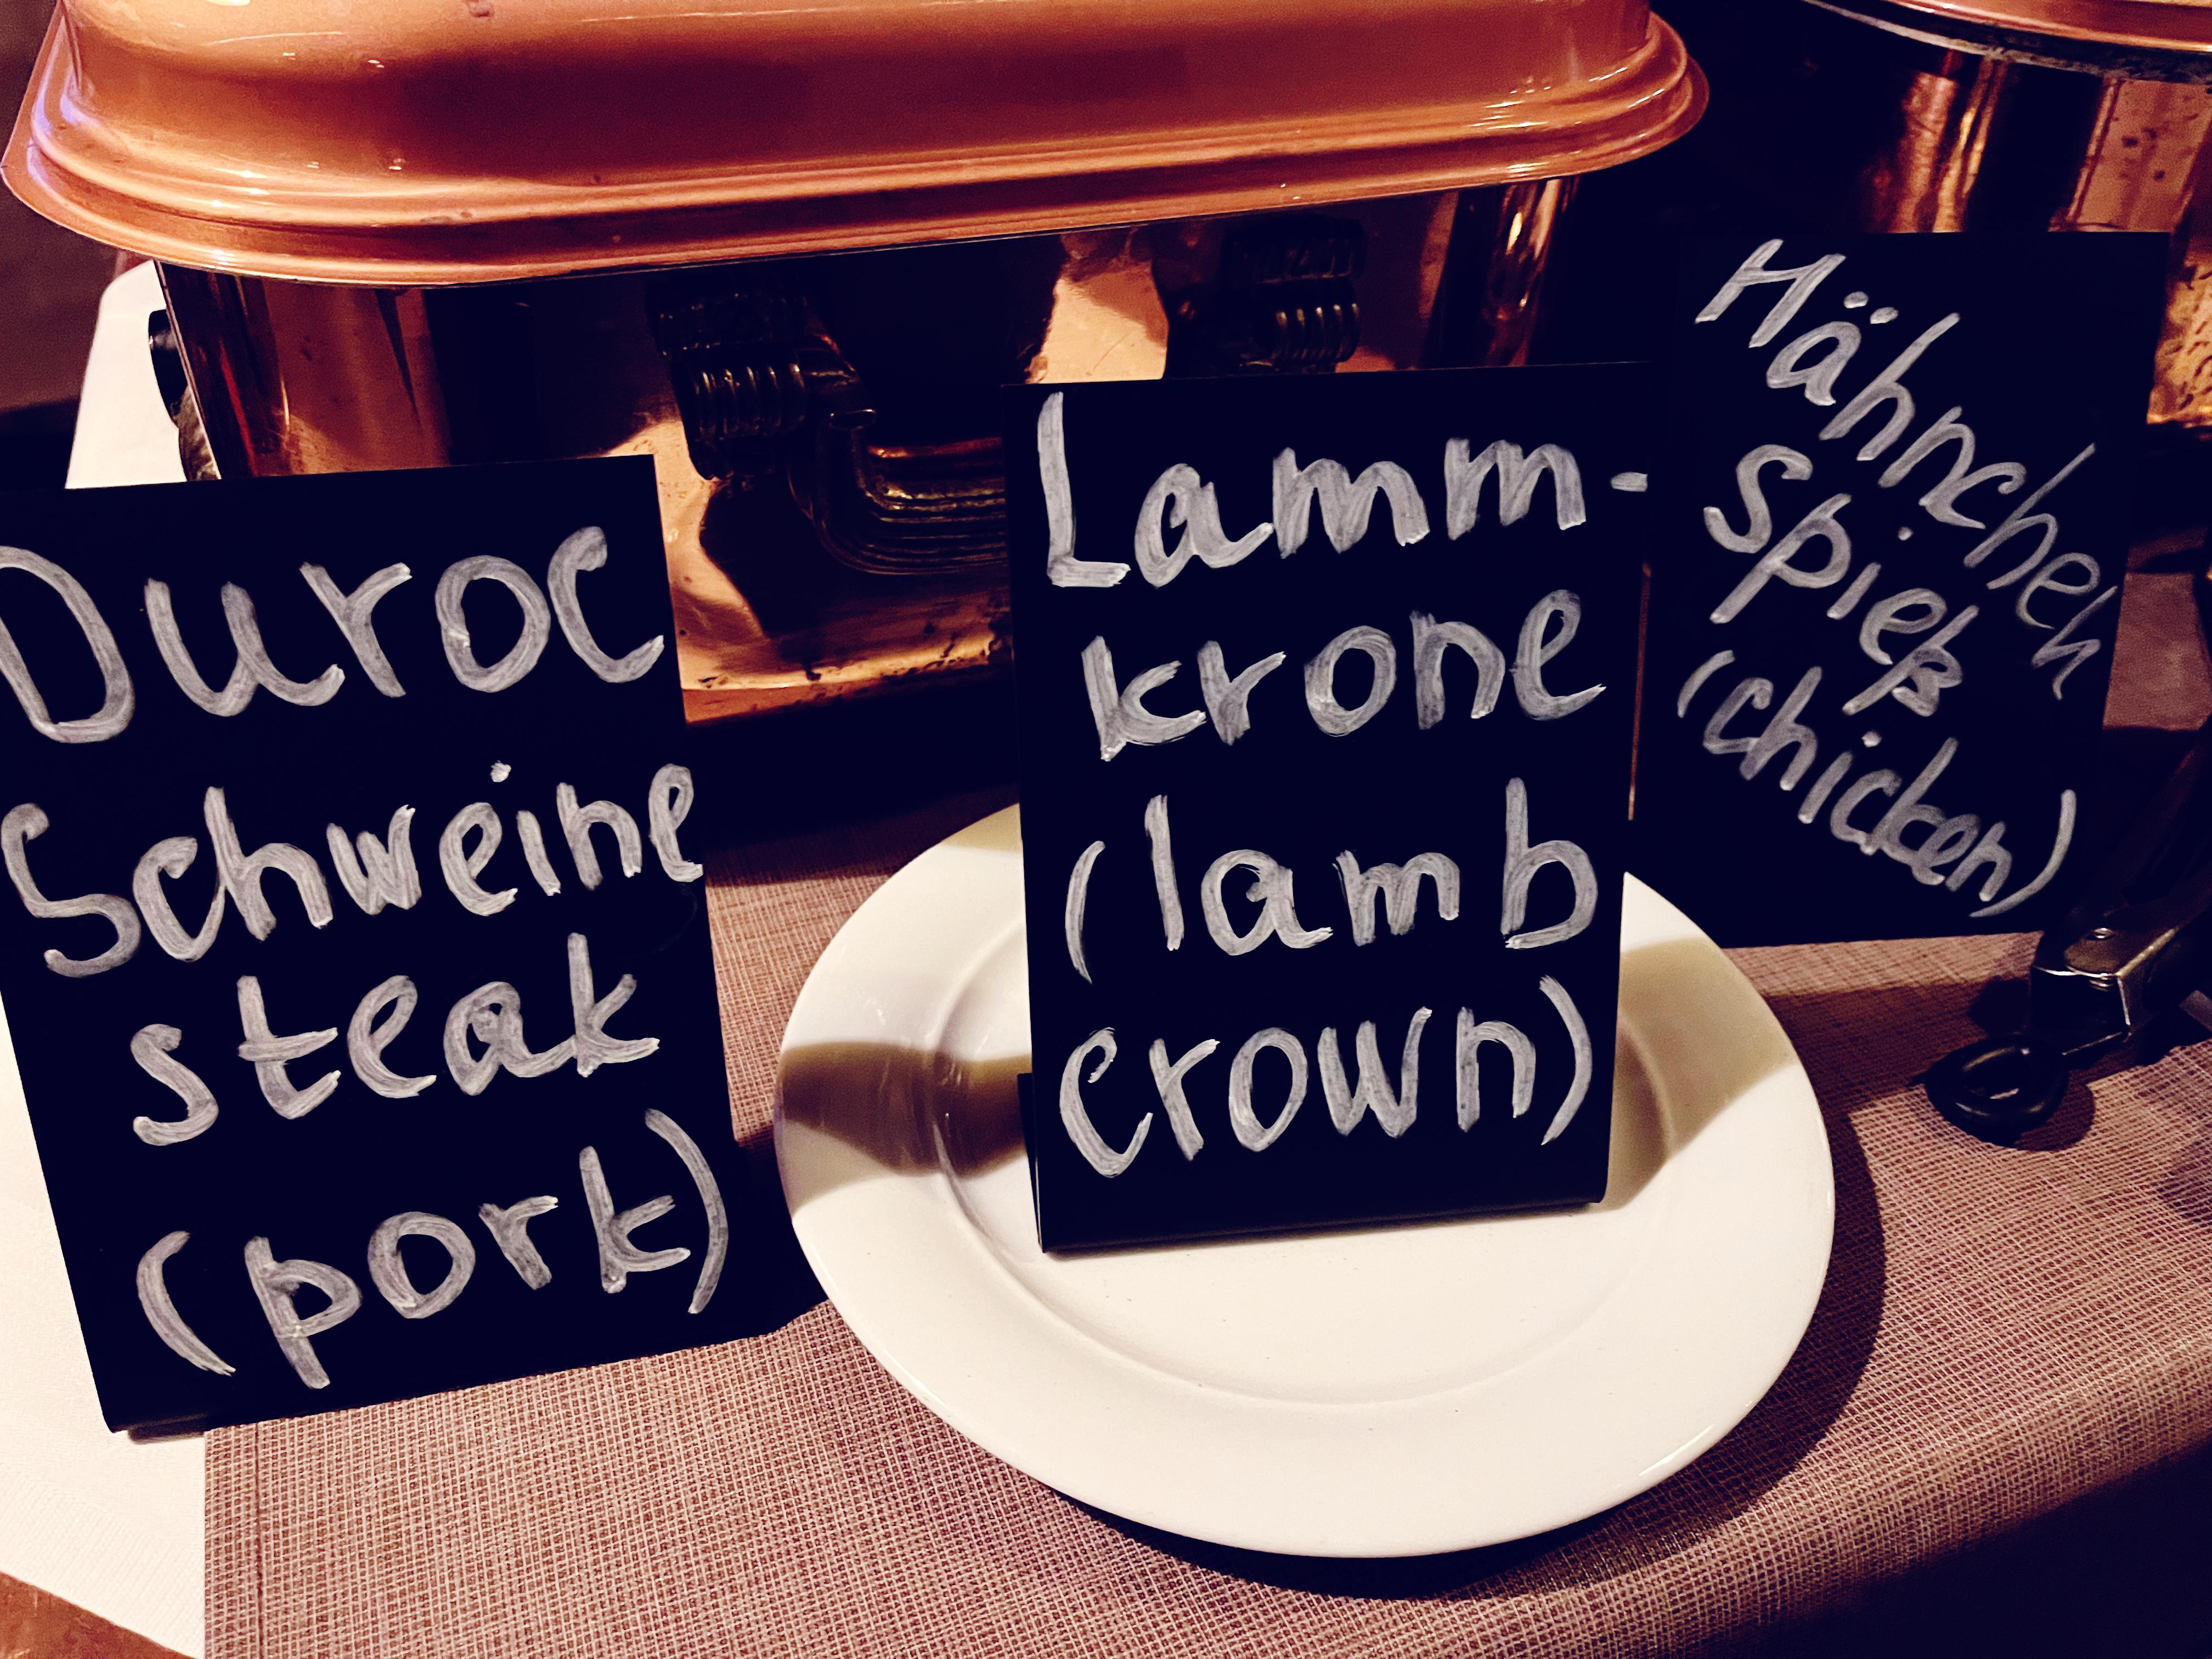 Duroc
Schweine
steak
(pork)
Lamm-
krone
(lamb
crown)
Hähnchen
Spieß
(chicken)